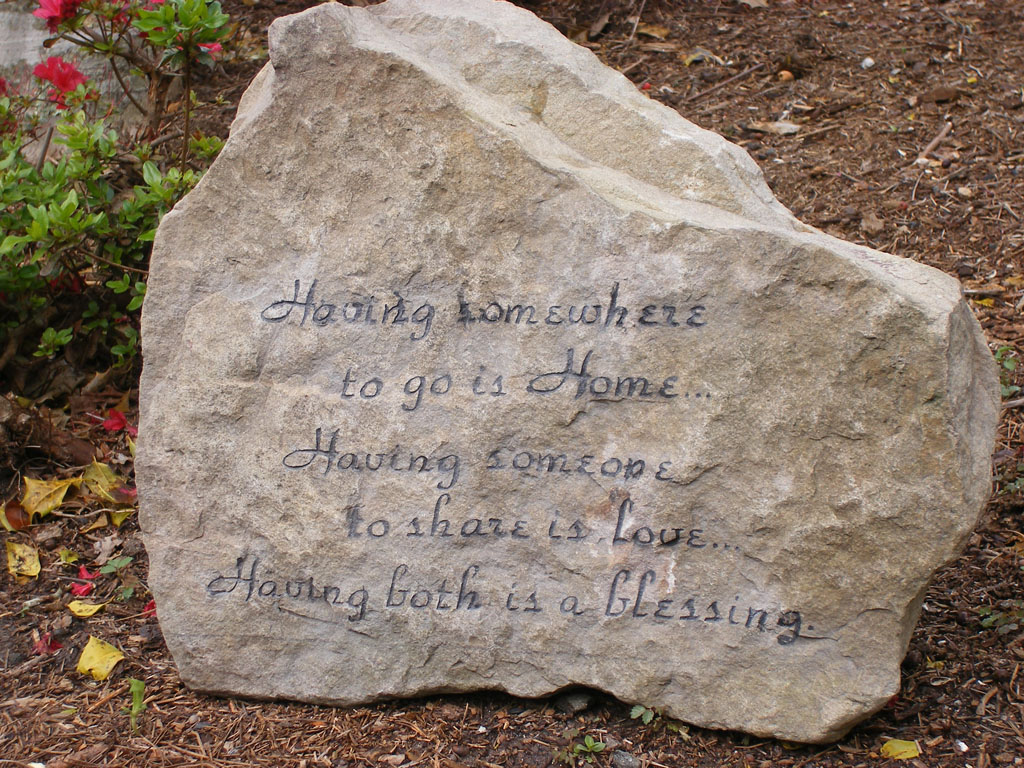 Having somewhere
to go is Home...
Having someone
to share is Love...
Having both is a blessing.